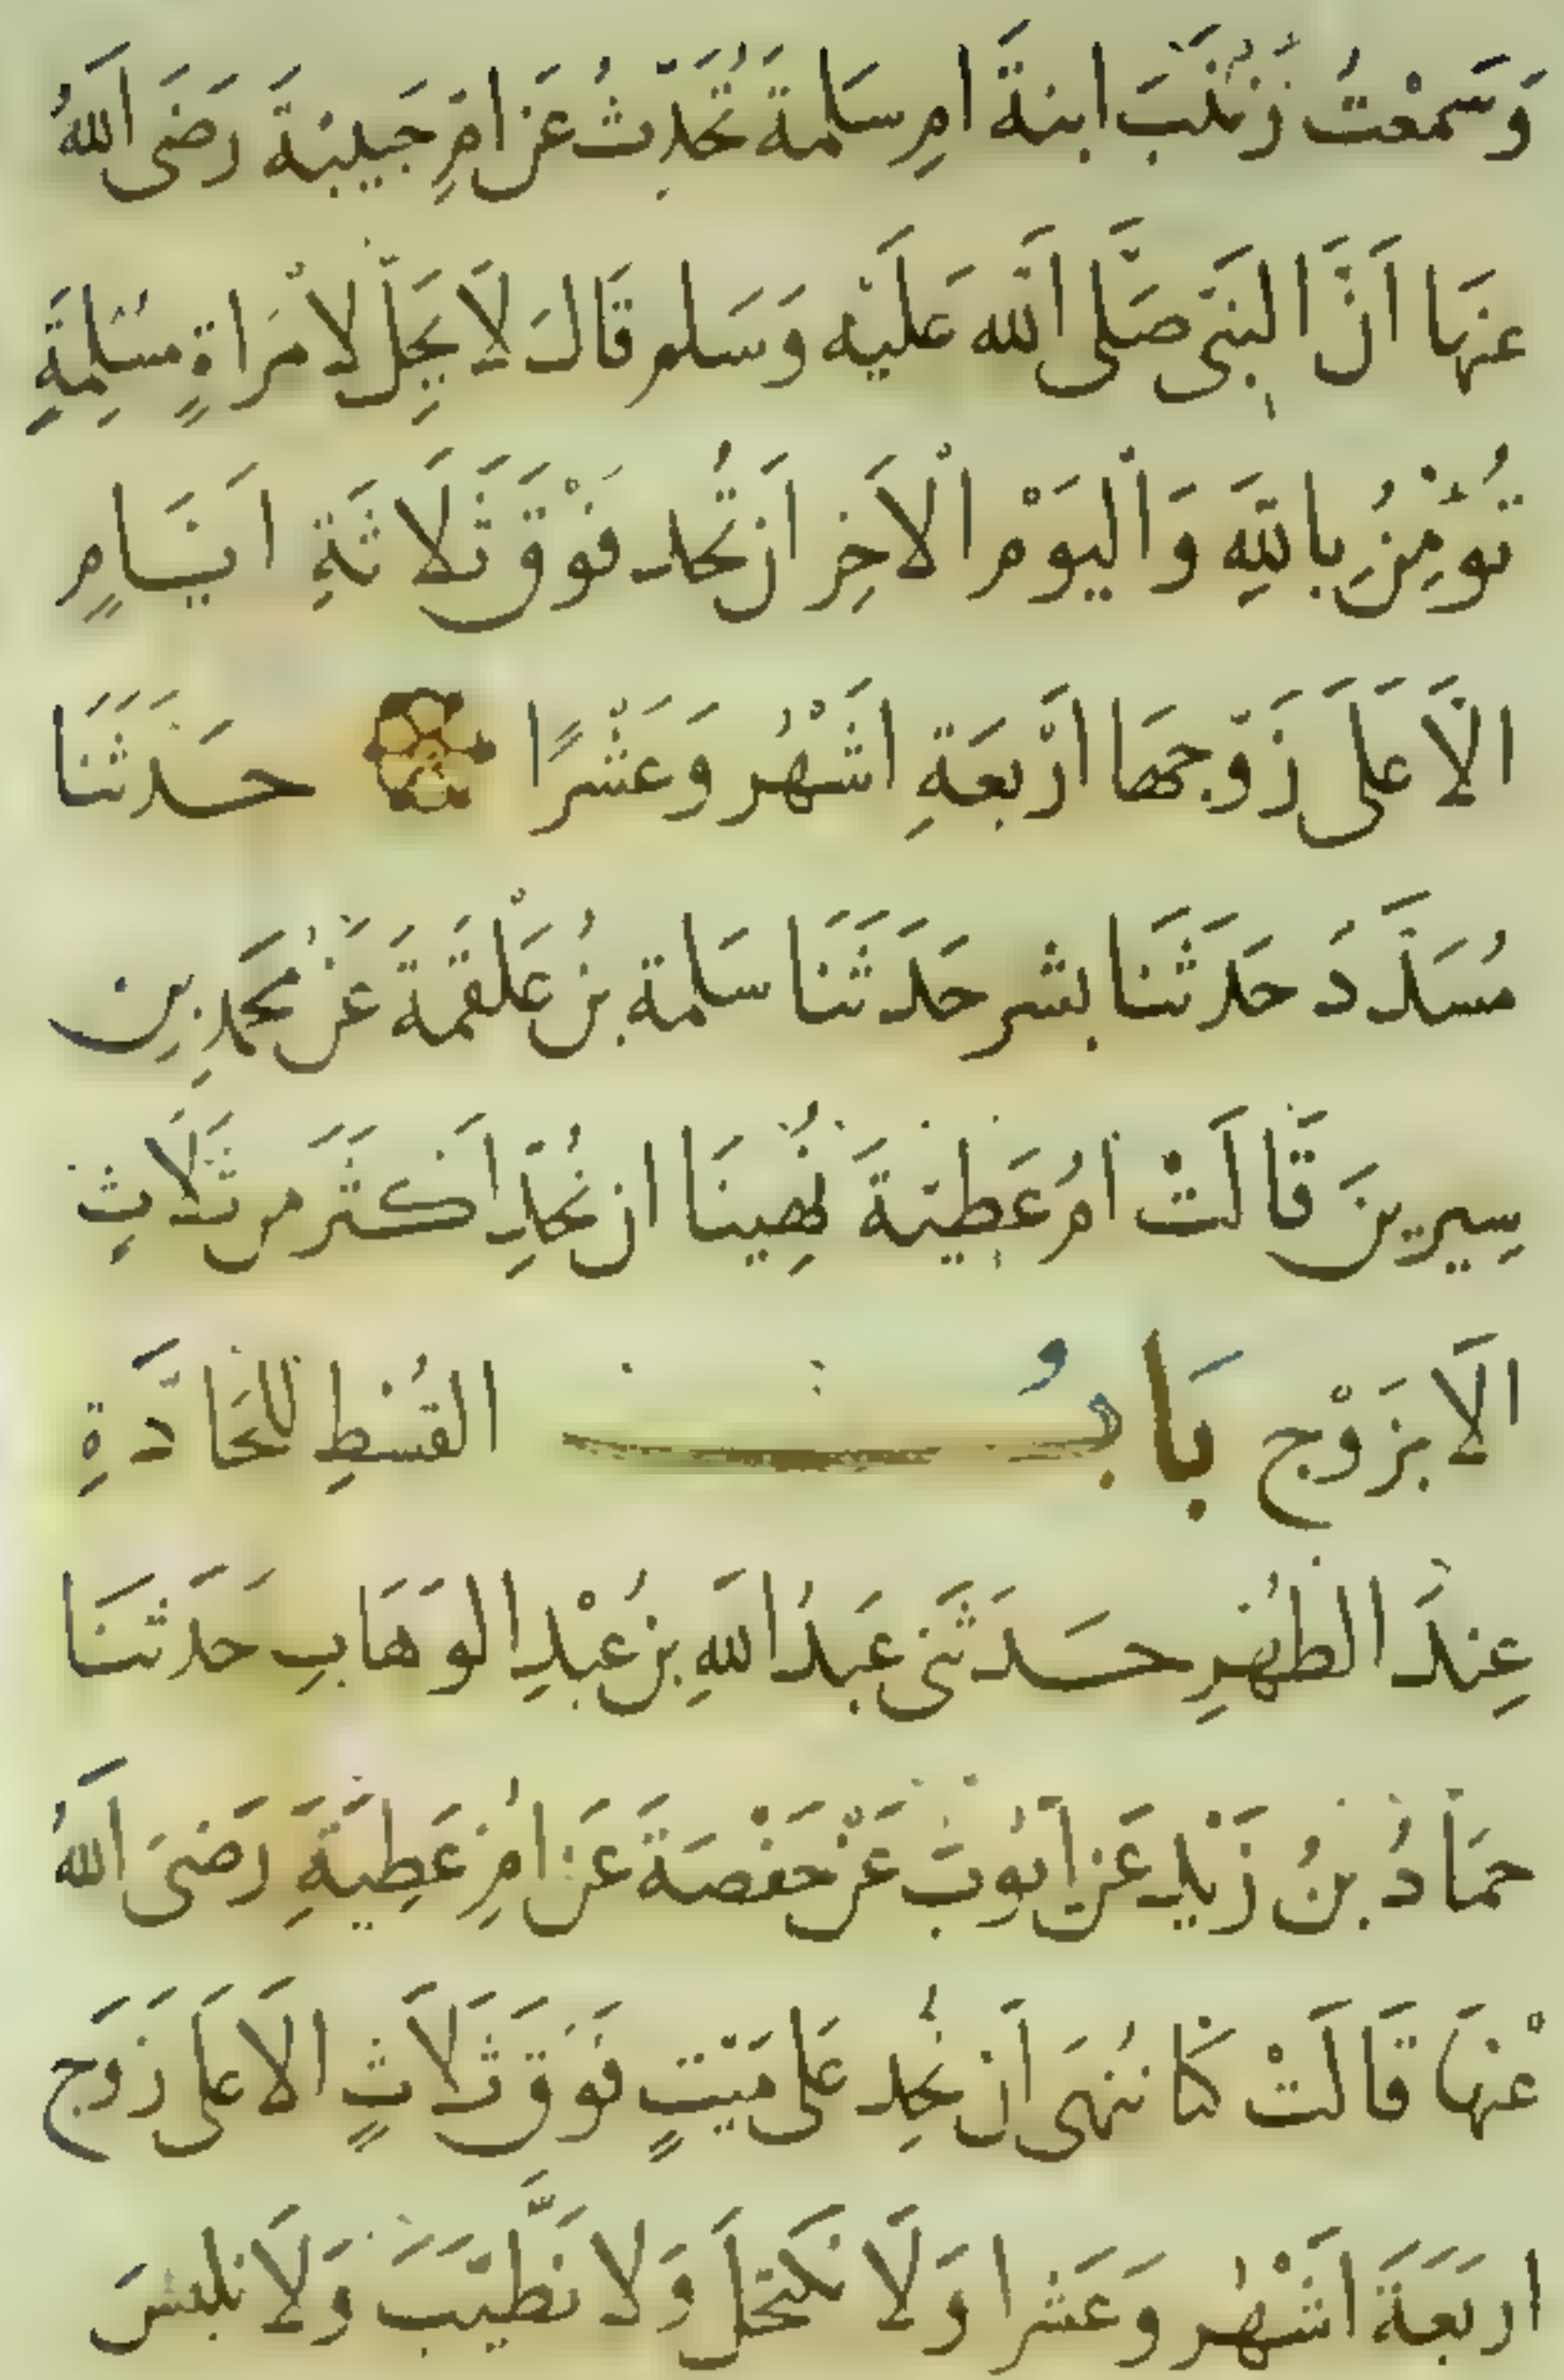 وَسَمِعْتُ زَيْنَبَ ابنةَ امِ سَلمةَ تُحَدِّثُ عَن امِّ حَبِيبَةَ رَضَى اَللهُ
عنهَا اَنَّ النَبَّى صَلَّى اَلله عَلَيْه وَسَلم قَالَ لَا يَحِلّ لامْرَاةٍ مسُلِمَةٍ
تُوْمِنُ بِاللَّهِ وَاْليَوْم الْاَخِرِ اَن تُحد فَوْقَ ثَلَاثَةِ ايَّامٍ
الَّا عَلَى زَوْجهَا ارْبَعَةِ اَشْهُر وَعَشْرًا حَدَثَنَا
مُسَدَّدَ حَدَثَنَا بشر حَدَثَنَا سَلمة بنُ عَلْقَمَةَ عَنْ مُحَمدِ بنِ
سِيرينَ قَالَتْ امُ عَطِيَّةَ نُهِينَا ان نُحدِّ اَكثَرَ من ثَلَاثٍ
الَا بزَوْج بَابُ القُسْطِ للحَادَّةِ
عِندَ الطُهْرِ حَدَثَنى عَبدُ اَللهِ بنُ عَبْدِ الوَهَابِ حَدَثنَا
حمَادُ بنُ زَيْدٍ عَن اَيُوبَ عَنْ حَفْصَةَ عَن امِ عَطِيةَِ رَضىَ اَللهُ
عْنهَا قَالَتْ كنَا نُنهَى اَن نُحِد عَلى مَيّتٍ فَوَقَ ثَلَاثٍ الَا عَلَى زَوَج
اربَعَةَ اَشْهُر وَعَشرا وَلَا نَكتَحلَ وَلا نَطَّيَبَ وَلَا نلبسَ